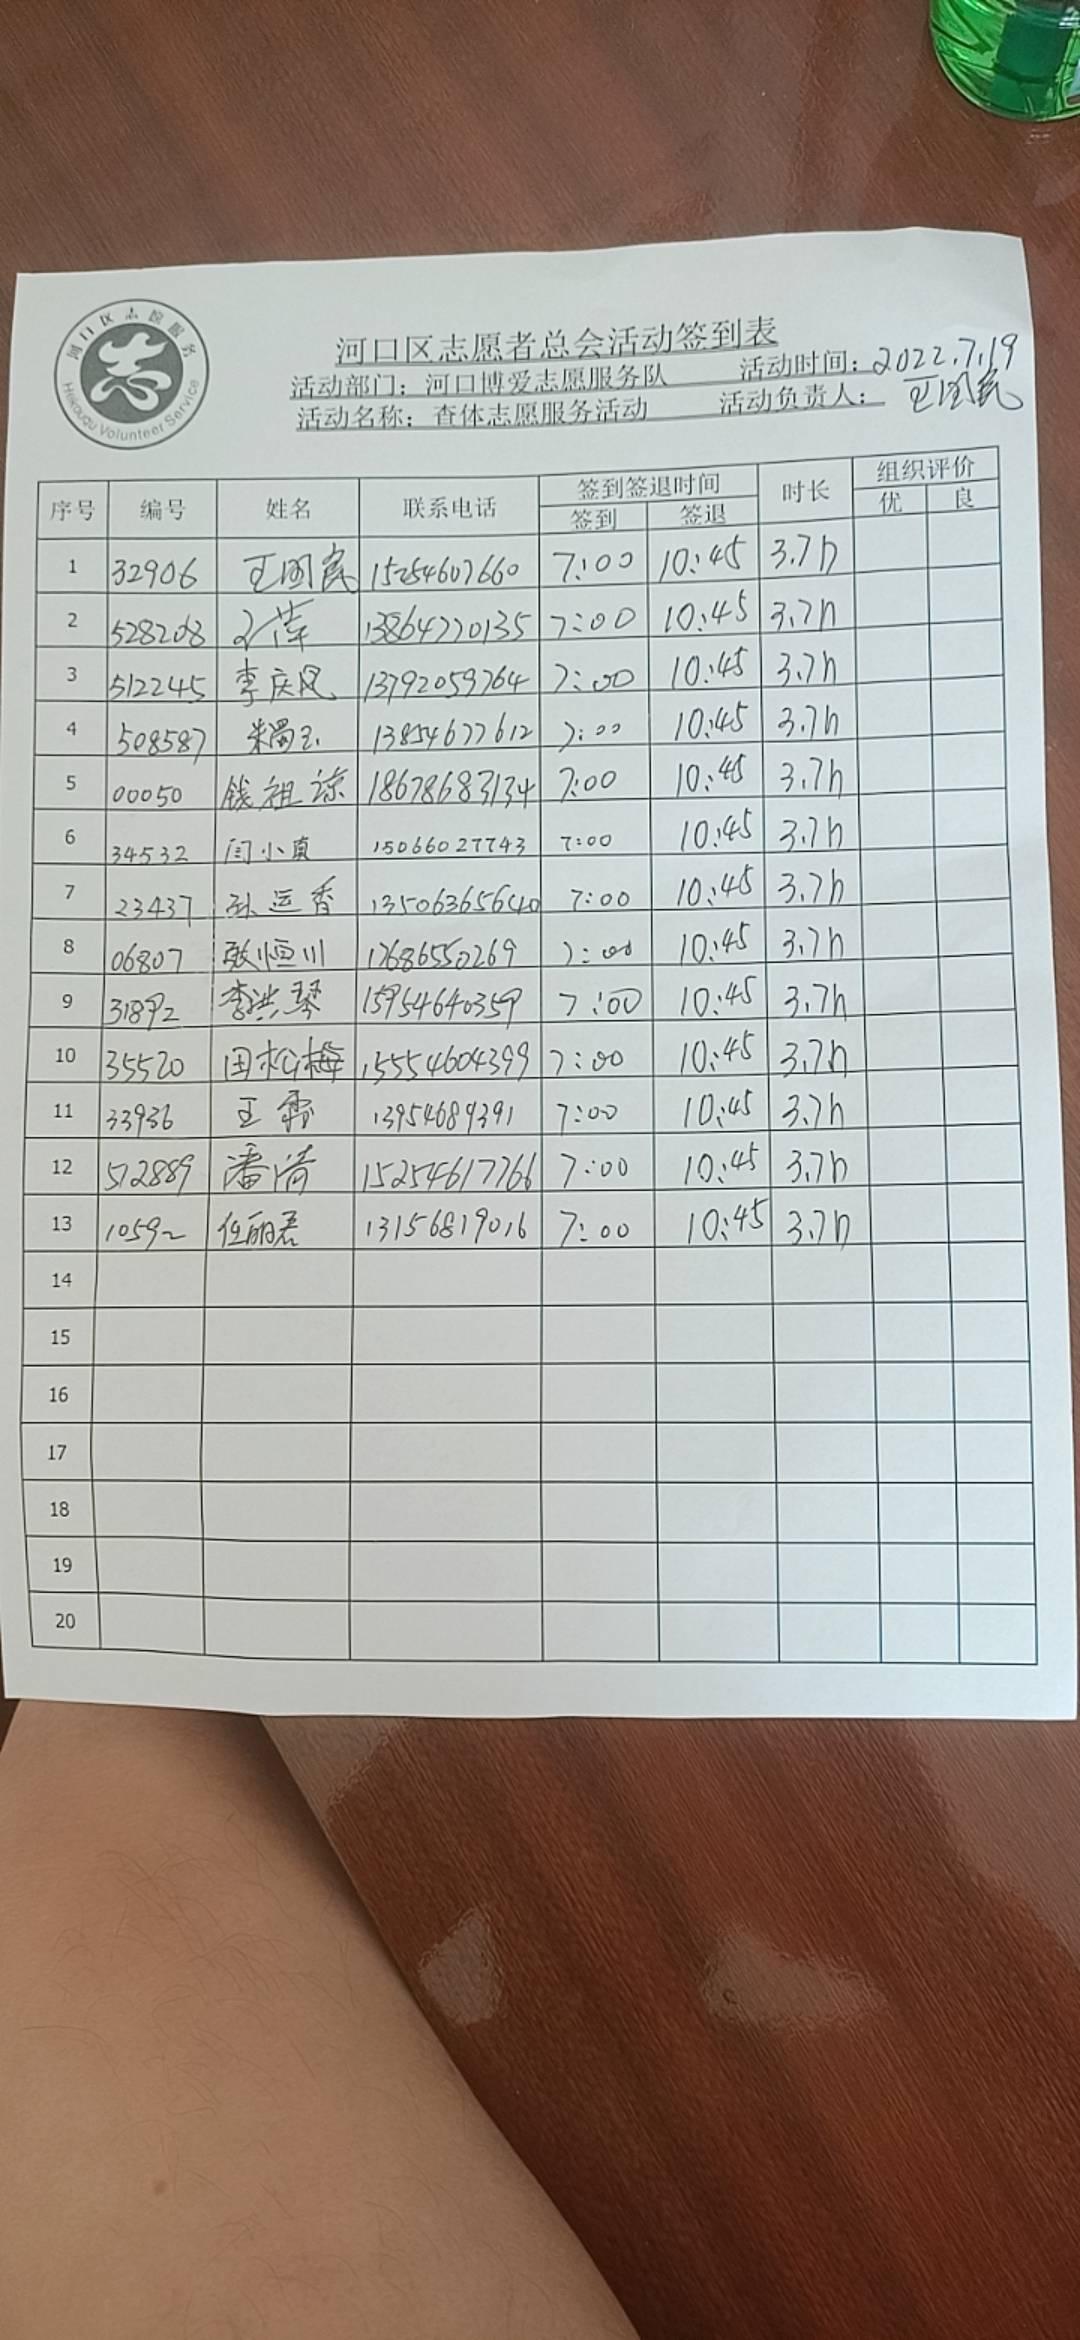 河口区志愿服务
志
Hekouqu Volunteer Service
河口区志愿者总会活动签到表
活动部门：河口博爱志愿服务队 活动时间：2022.7.19
活动名称：查体志愿服务活动 活动负责人：王国民
序号 编号 姓名 联系电话 签到签退时间 时长 组织评价
签到 签退 优 良
1 32906 王国民 15254607660 7:00 10:45 3.7h
2 528208 13864770135 7:00 10:45 3.7h
3 512245 李庆凤 13792059764 7:00 10:45 3.7h
4 508587 13854677612 7:00 10:45 3.7h
5 00050 钱祖谅 18678683134 7:00 10:45 3.7h
6 34532 闫小真 15066027743 7:00 10:45 3.7h
7 23437 孙运香 13506365640 7:00 10:45 3.7h
8 06807 恒川 17686550269 7:00 10:45 3.7h
9 31892 李洪琴 15954640359 7:00 10:45 3.7h
10 35520 田松梅 15554604399 7:00 10:45 3.7h
11 33936 王霞 13954689391 7:00 10:45 3.7h
12 512889 潘涛 15254617766 7:00 10:45 3.7h
13 10592 任丽君 13156819016 7:00 10:45 3.7h
14
15
16
17
18
19
20